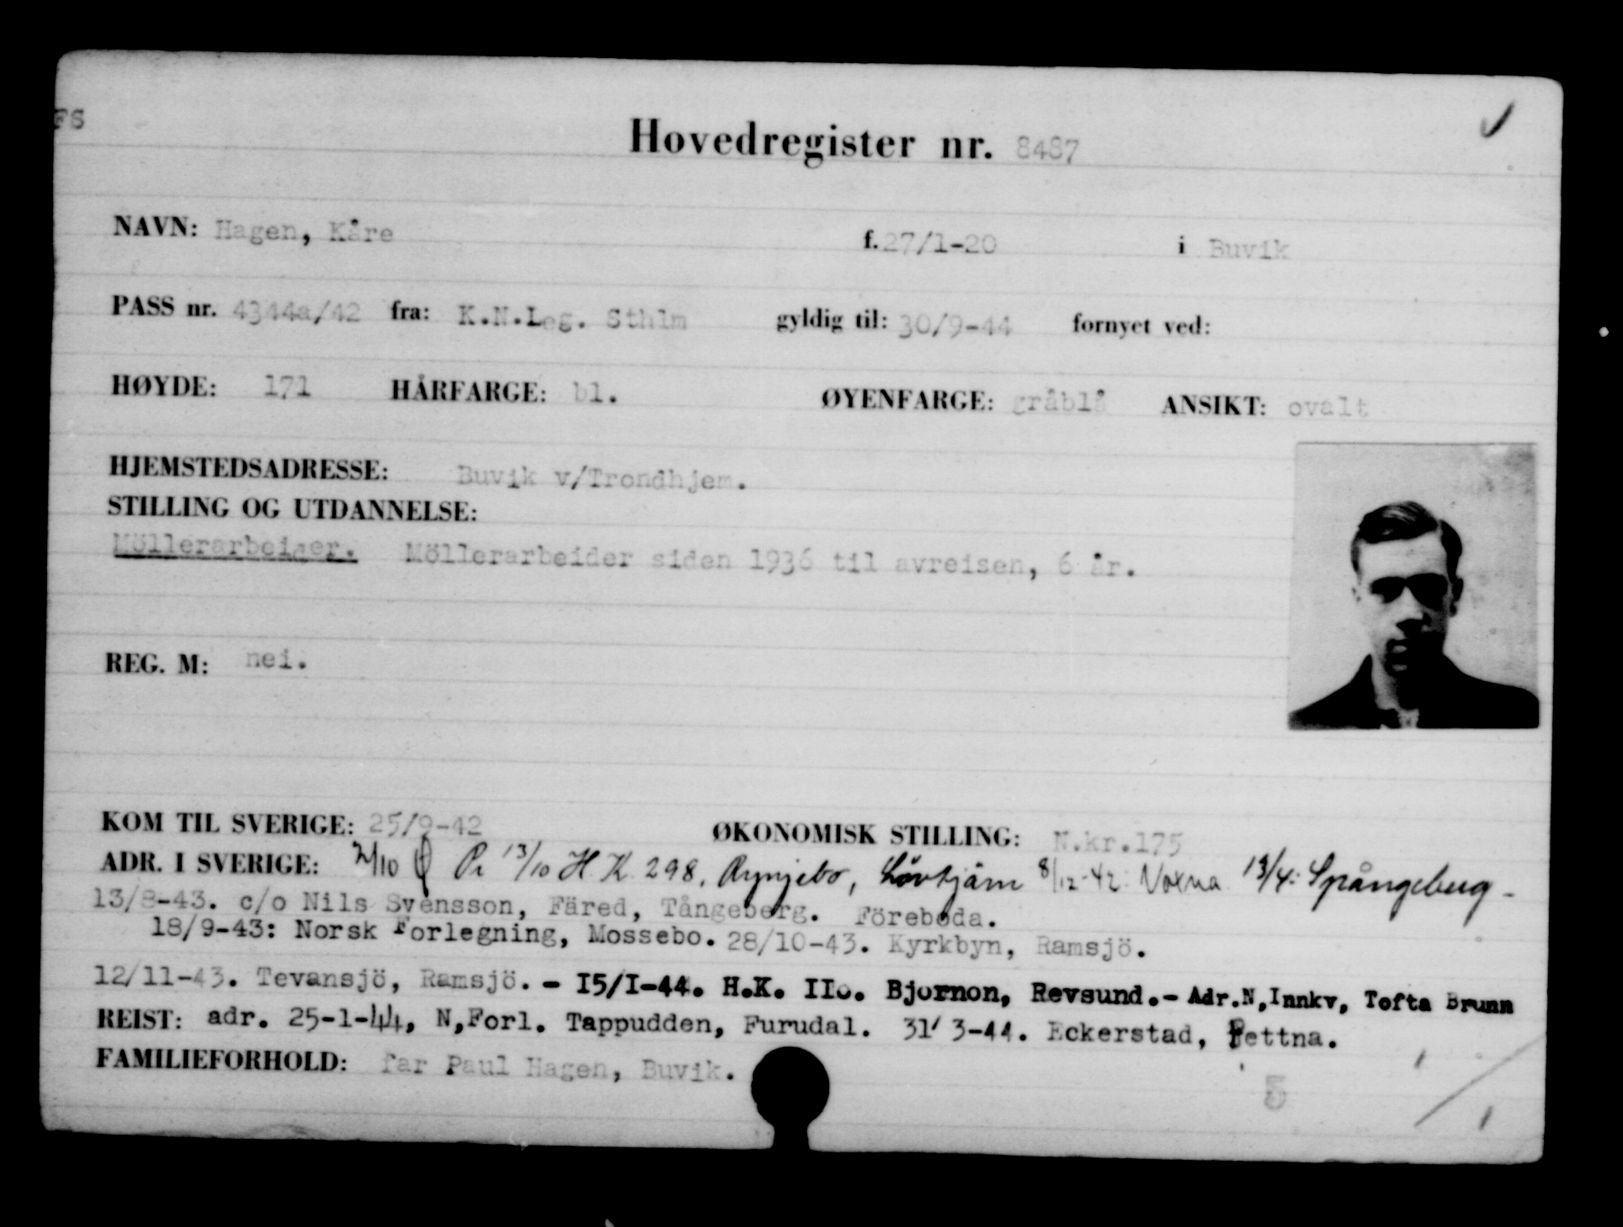 FS
Hovedregister nr. 8487
NAVN: Hagen, Kåre f. 27/1-20 i Buvik
PASS nr. 4344a/42 fra: K.N.Leg. Sthlm gyldig til: 30/9-44 fornyet ved:
HØYDE: 171 HÅRFARGE: bl. ØYENFARGE: gråblå ANSIKT: ovalt
HJEMSTEDSADRESSE: Buvik v/Trondhjem.
STILLING OG UTDANNELSE:
Möllerarbeider. Möllerarbeider siden 1936 til avreisen, 6 år.
REG. M: nei.
KOM TIL SVERIGE: 25/9-42 ØKONOMISK STILLING: N.kr.175
ADR. I SVERIGE: 2/10 Ø 13/10 H K 298, Rynjebo, Løvtjärn 8/12-42: Voxna 13/4: Spångeberg -
13/8-43. c/o Nils Svensson, Färed, Tångeberg. Föreboda.
18/9-43: Norsk Forlegning, Mossebo. 28/10-43. Kyrkbyn, Ramsjö.
12/11-43. Tevansjö, Ramsjö. - I5/I-44. H.K. IIo. Bjornon, Revsund.- Adr.N,Innkv, Tofta Brunn
REIST: adr. 25-1-44, N,Forl. Tappudden, Furudal. 31/3-44. Eckerstad, Fettna.
FAMILIEFORHOLD: far Paul Hagen, Buvik.
5